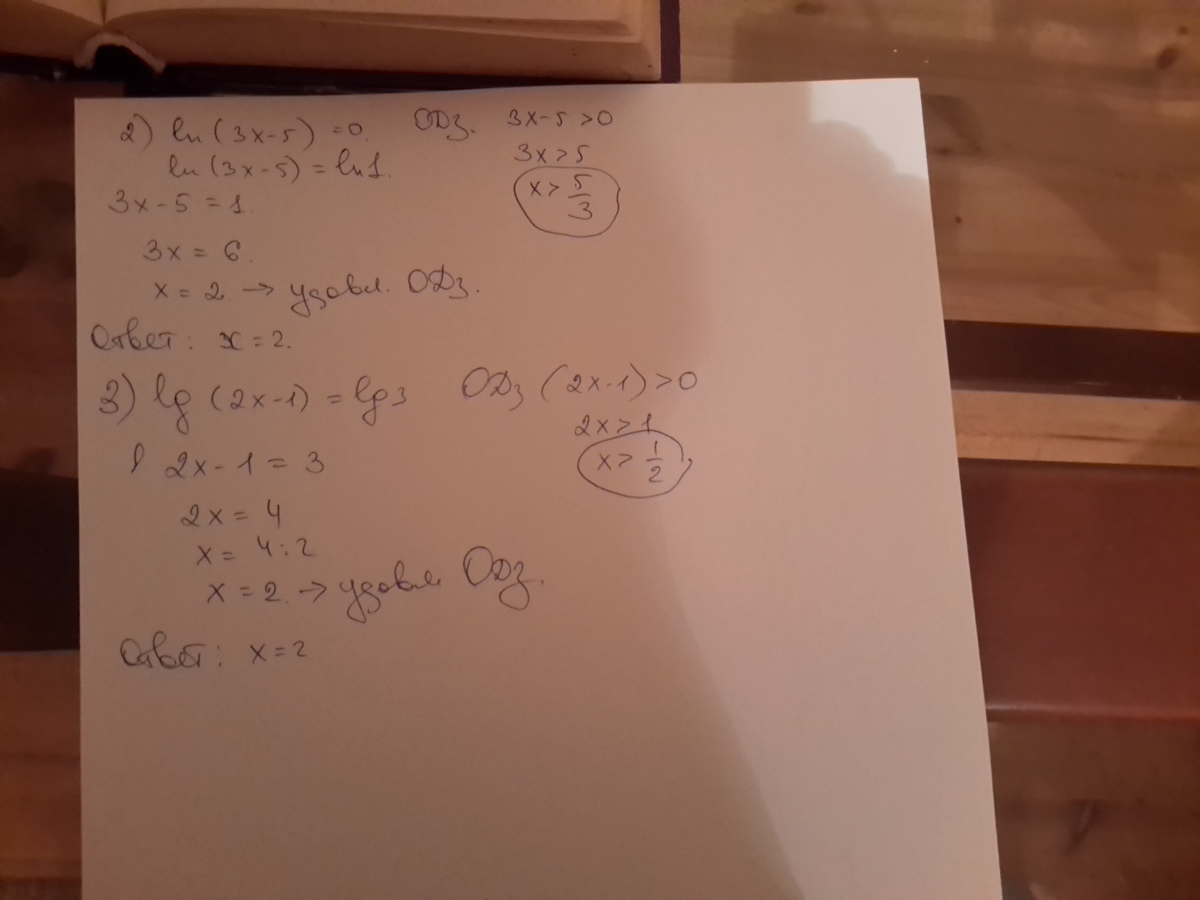 2) ln (3x-5) = 0. ОДЗ. 3x-5 > 0
ln (3x-5) = ln1. 3x > 5
3x - 5 = 1. x > 5/3
3x = 6.
x = 2. → удовл. ОДЗ.
Ответ: x = 2.
3) lg (2x-1) = lg 3 ОДЗ (2x-1) > 0
2x > 1
2x - 1 = 3 x > 1/2
2x = 4
x = 4:2
x = 2. → удовл ОДЗ.
Ответ: x = 2